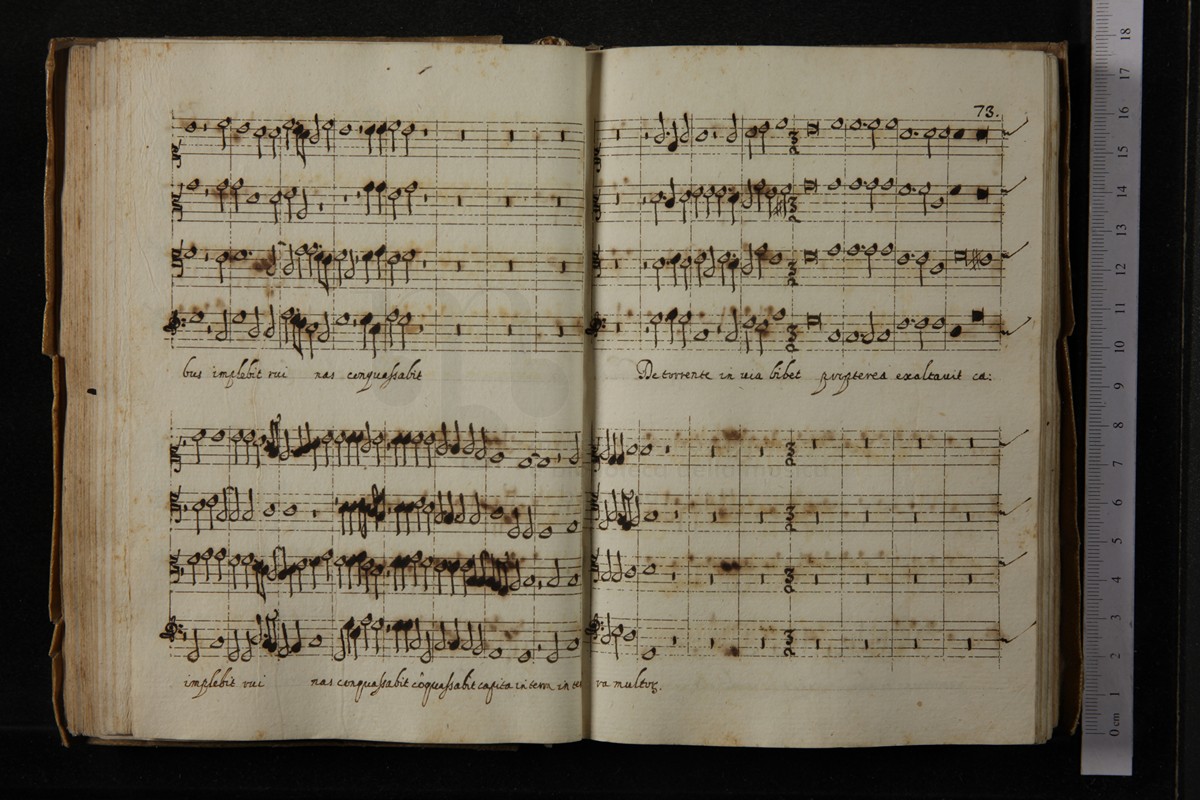 73.
bus implebit rui nas conquassabit
De torrente in uia bibet propterea exaltauit ca:
implebit rui nas conquassabit cõquassabit capita in terra in ter ra multoꝝ.
18
17
16
15
14
13
12
11
10
9
8
7
6
5
4
3
2
1
0 cm